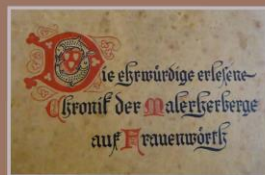 Die ehrwürdige erlesene
Chronik der Malerherberge
auf Frauenwörth